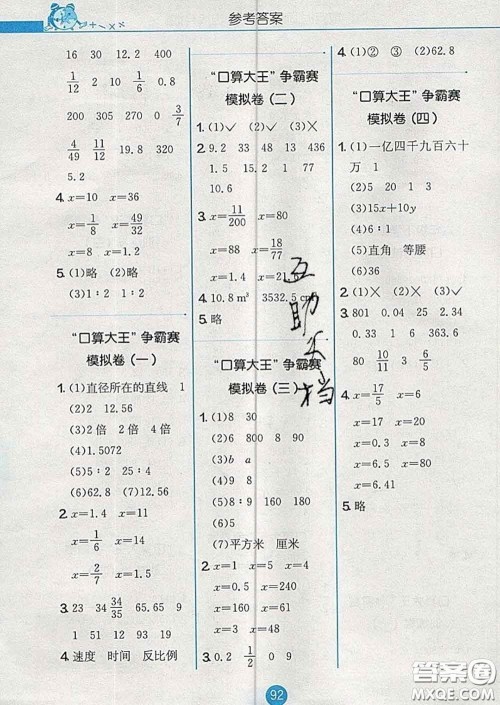 参考答案
16 30 12.2 400
1/12 2 10 0.4
200 305 270 0
4/49 11/15 19.8 320
5.2
4. x=10 x=36
x=1/8 x=49/32
x=8 x=1.2
5. (1)略 (2)略
(3)1∶2 1∶2
“口算大王”争霸赛
模拟卷(一)
1. (1)直径所在的直线 1
(2)2 12.56
(3)2倍 2倍 4倍
(4)1.5072
(5)5∶2 25∶4
(6)62.8 (7)12.56
2. x=1.4 x=11
x=1/6 x=14
x=2/7 x=1.5
3. 16 34 34/35 65.65 9
1 51 12 93 19
4. 速度 时间 反比例
“口算大王”争霸赛
模拟卷(二)
1. (1)✓ (2)✓ (3)✕
2. 9.2 33 48 13 436
1.5 15 1.2 171
10.6
3. x=11/200 x=8
x=88 x=18/77
x=1.4 x=21.6
4. 10.8 m³ 3532.5
5. 略
“口算大王”争霸赛
模拟卷(三)
1. (1)8 30
(2)6 800 8 90
(3)b a
(4)9 5
(5)8∶9 160 180
(6)5
(7)平方米 厘米
2. x=1 x=5 x=4
x=0.5 x=240
x=160 x=61
x=3 x=48
3. 0.2 1/2 0 9
4. (1)② ③ (2)62.8
“口算大王”争霸赛
模拟卷(四)
1. (1)一亿四千九百六十
万 1
(2)5 20 1 3
(3)15x+10y
(4)6∶1
(5)直角 等腰
(6)36
2. (1)✕ (2)✕ (3)✕
3. 801 0.04 25 3
0.33 1 63 6.3 0.36
80 10/11 3/8 64
4. x=17/5 x=6
x=0.3 x=8
x=6.5 x=80
x=6.4 x=81
5. 略
互助文档
92
答案圈
MXQE.COM